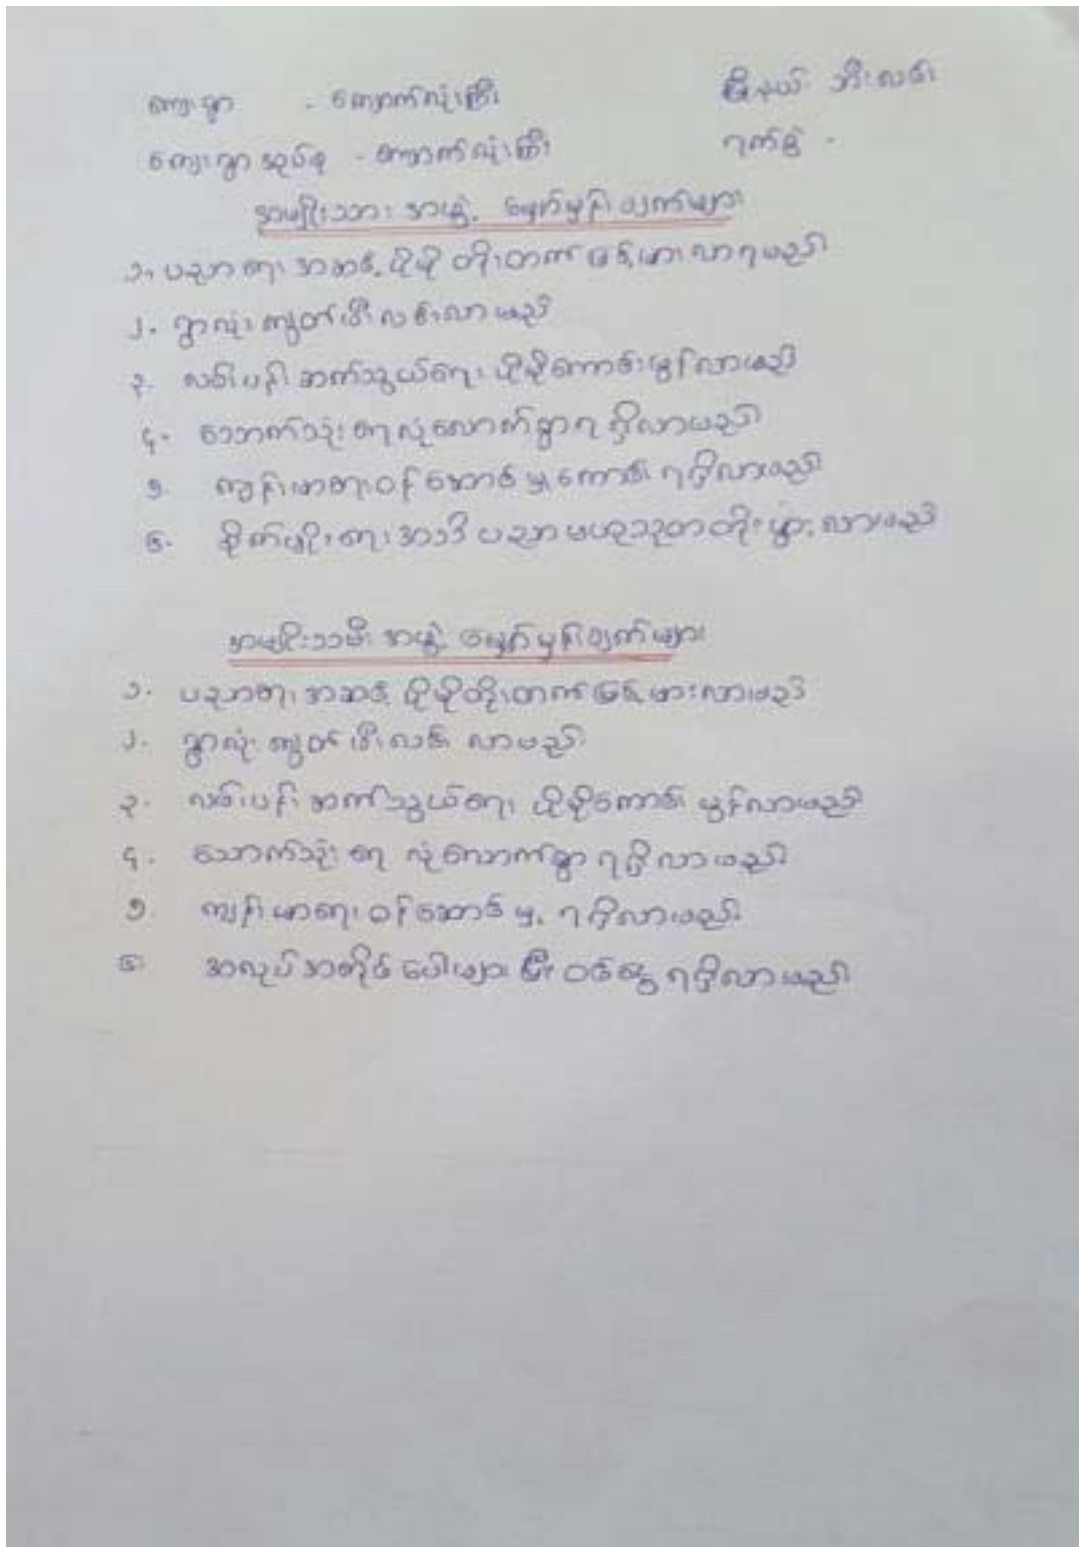 ကျေးရွာ - ကျောက်လုံးကြီး မြို့နယ် ဘီးလင်း
ကျေးရွာအုပ်စု - ကျောက်လုံးကြီး ရက်စွဲ -
အမျိုးသား အဖွဲ့ မျှော်မှန်းချက်များ
၁။ ပညာရေး အဆင့် ပိုမို တိုးတက် မြင့်မားလာရမည်။
၂. ရွာလုံးကျွတ်မီးလင်းလာမည်။
၃. လမ်းပန်းဆက်သွယ်ရေး ပိုမိုကောင်းမွန်လာမည်။
၄. သောက်သုံးရေလုံလောက်စွာ ရရှိလာမည်။
၅. ကျန်းမာရေးဝန်ဆောင်မှုကောင်း ရရှိလာမည်။
၆. စိုက်ပျိုးရေး အသိပညာ ဗဟုသုတတိုးပွားလာမည်။
အမျိုးသမီး အဖွဲ့ မျှော်မှန်းချက်များ
၁. ပညာရေး အဆင့် ပိုမိုတိုးတက်မြင့်မားလာမည်။
၂. ရွာလုံးကျွတ် မီးလင်း လာမည်။
၃. လမ်းပန်း ဆက်သွယ်ရေး ပိုမိုကောင်းမွန်လာမည်။
၄. သောက်သုံးရေ လုံလောက်စွာ ရရှိလာမည်။
၅. ကျန်းမာရေး ဝန်ဆောင်မှု ရရှိလာမည်။
၆. အလုပ်အကိုင် ပေါများပြီး ဝင်ငွေ ရရှိလာမည်။